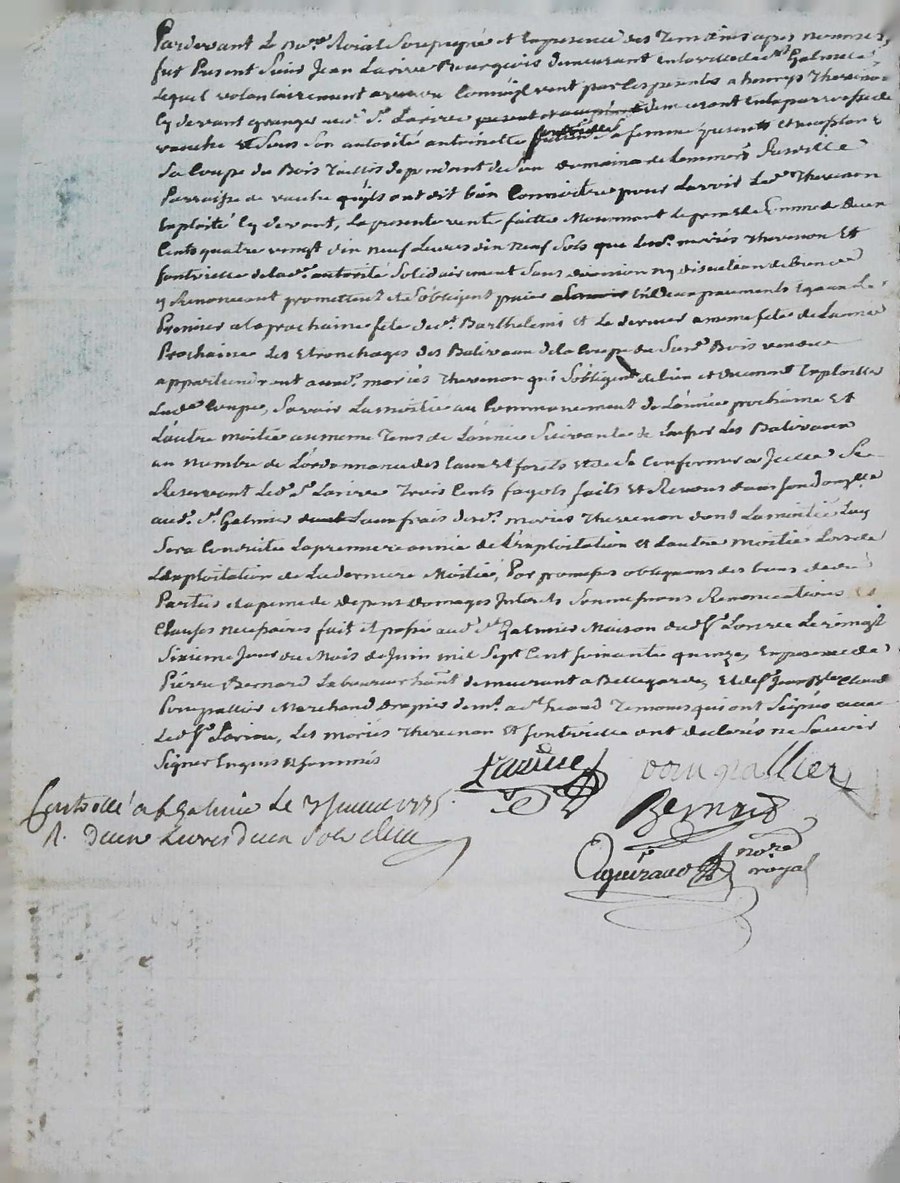 Pardevant Le no.re Roial Soussigné et En presence des Temoins apres nommés,
fut Present Sieur Jean Larue Bourgeois demeurant En la ville de S.t Galmier
Lequel volontairement a vendu Comme il vent par Les presentes a
Cy devant granger aud. S.r Larue demeurant En la parroisse de
et Sous Son autorité antoinette Sa femme presents et acceptants
La Coupe du Bois Taillis dependant de Son domaine de
Parroisse de qu'ils ont dit bien Connoitre pour Lavoir Led. Thevenon
Exploité Cy devant, La presente vente faitte Moyennant Le prix et Somme de Deux
Cents quatre vingt dix neuf Livres dix neuf Sols que Lesd. mariés Thevenon Et
fontvielle de lad. autorité Solidairement Sans division ny discution de biens
y Renonceant promettent et S'obligent paier En deux payements Egaux Le
Premier a la prochaine fete de S.t Barthelemi et Le dernier a meme fete de Lannée
Prochaine Les Etronchages des Baliveaux de la Coupe du Susd. Bois vendue
appartiendront auxd. mariés Thevenon qui S'obligent de bien et duement Exploitter
Lad.e Coupe, Savoir La moitié au Commancement de L'année prochaine Et
L'autre Moitié au meme Tems de L'année Suivante de Laisser Les Baliveaux
au Nombre de L'ordonnance des Eaux Et forets Et de Se Conformer a Icelle Se
Reservant Led. S.r Larue Trois Cents fagots faits Et Rendus dans Son
aud. S.t Galmier aux frais desd. mariés Thevenon dont La moitié Luy
Sera Conduitte La premiere année de L'Exploitation et L'autre Moitié Lors de
L'Exploitation de La derniere Moitié, Par promesses obligations des biens desd.
Parties et a peine de depens domages Interets Soumissions Renonciations Et
Clauses necessaires fait et passé aud. S.t Galmier Maison dud. S.r Larue Le vingt
Sixieme Jour du Mois de Juin mil Sept Cent Soixante quinze, En presence de
Pierre Bernard Laboureur demeurant a Bellegarde, Et de S.r Jean
Pourpallier Marchand drapier dem.t a Temoins qui ont Signés avec
Led. S.r Larue, Les mariés Thevenon Et fontvielle ont déclarés ne Scavoir
Signer Enquis et Sommés
Larue pourpallier
Bernard
Controllé a S.t Galmier Le Juillet 1775.
R. Deux Livres Deux Sols
no.re
royal